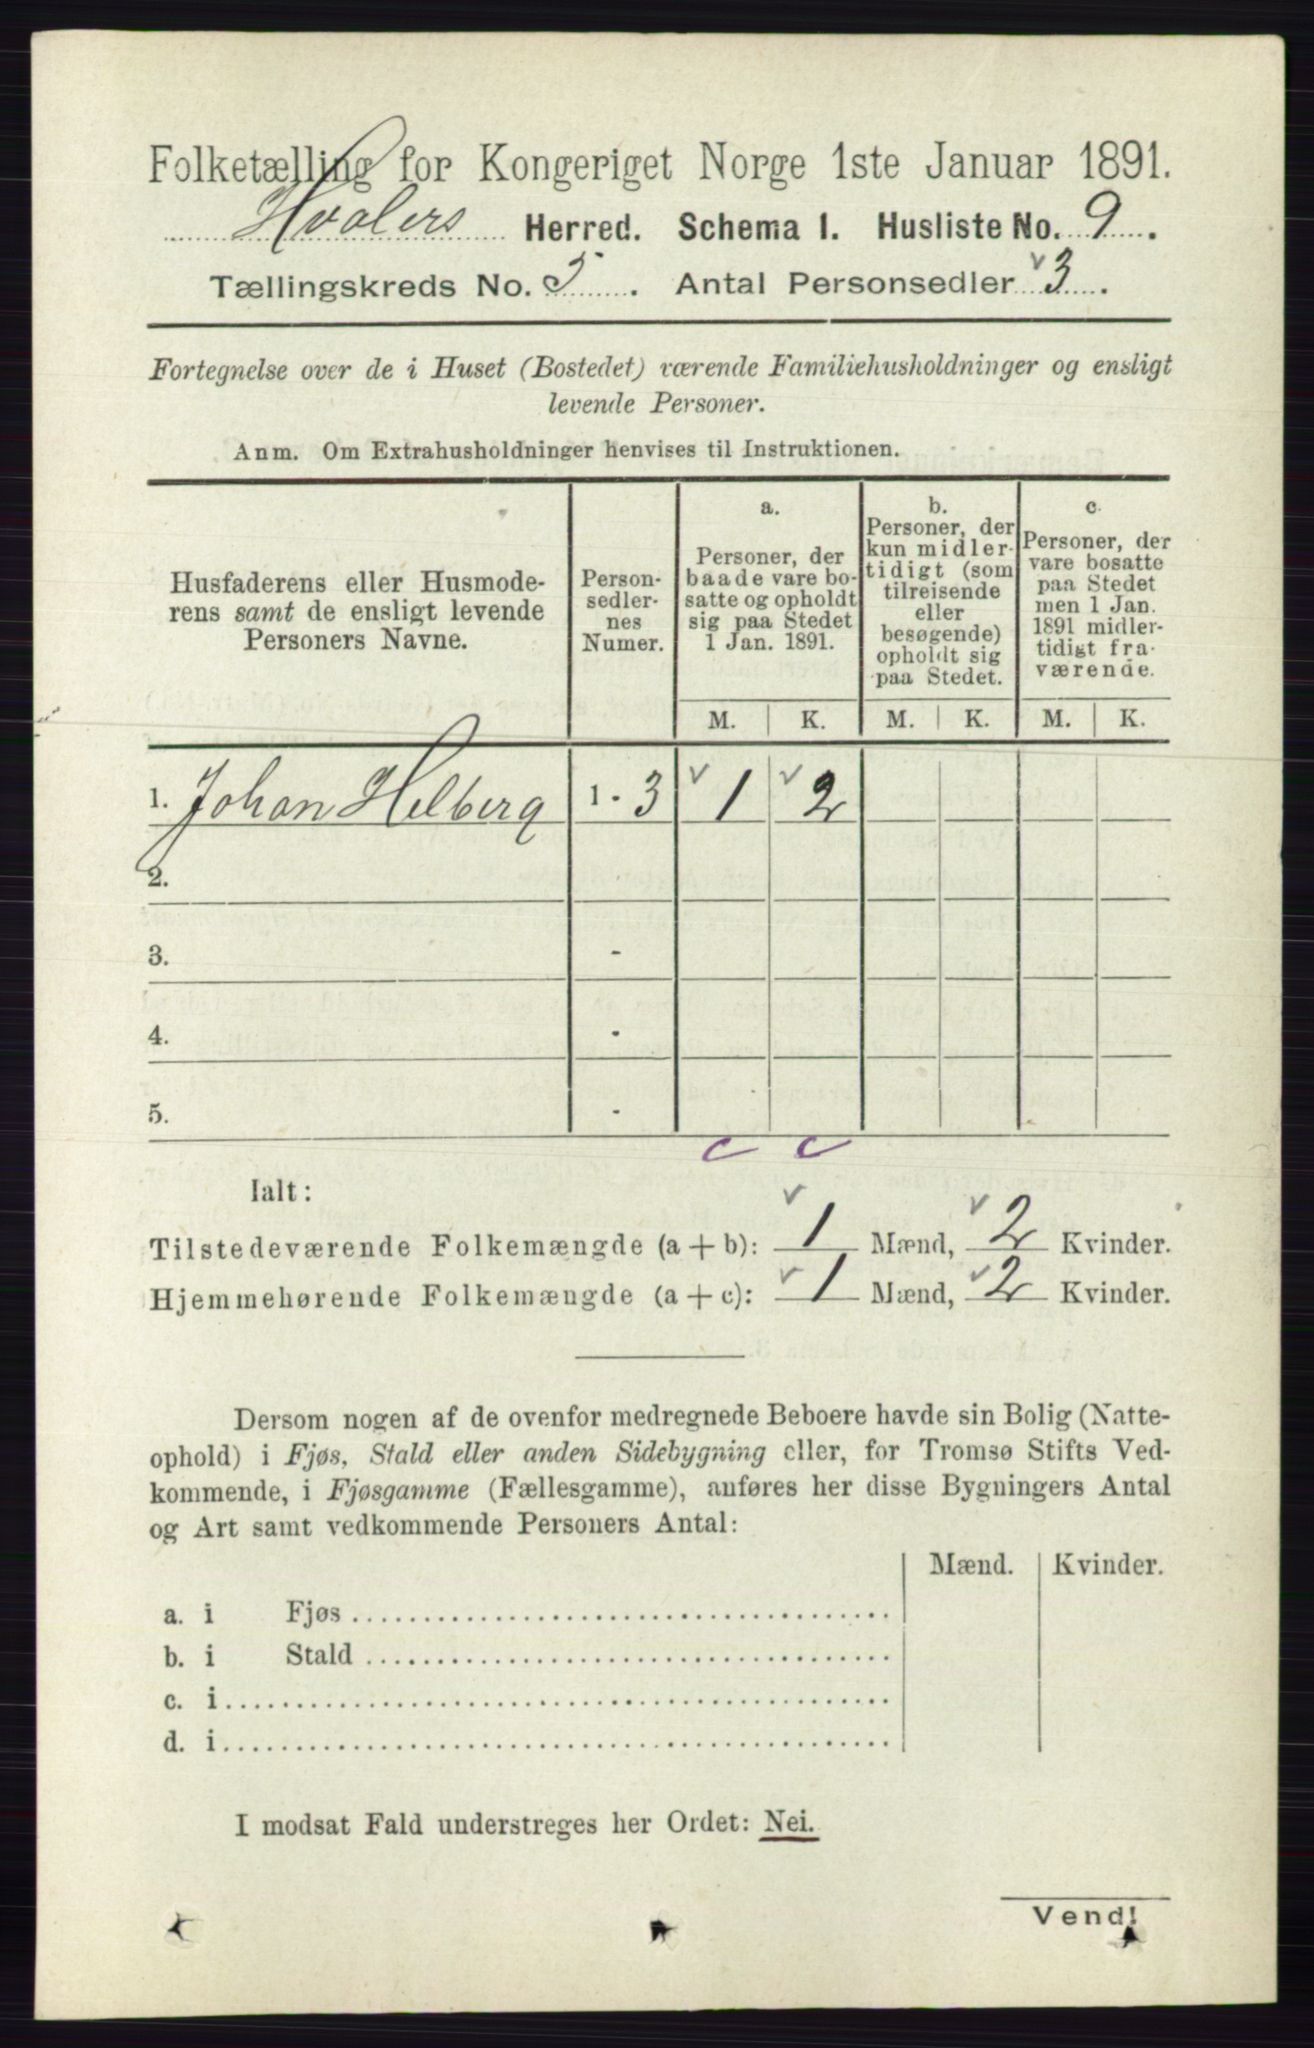 Folketælling for Kongeriget Norge 1ste Januar 1891.
Hvalers Herred. Schema 1. Husliste No. 9.
Tællingskreds No. 5. Antal Personsedler 3.
Fortegnelse over de i Huset (Bostedet) værende Familiehusholdninger og ensligt
levende Personer.
Anm. Om Extrahusholdninger henvises til Instruktionen.
Husfaderens eller Husmode-
rens samt de ensligt levende
Personers Navne.
Person-
sedler-
nes
Numer.
a.
Personer, der
baade vare bo-
satte og opholdt
sig paa Stedet
1 Jan. 1891.
b.
Personer, der
kun midler-
tidigt (som
tilreisende
eller
besøgende)
opholdt sig
paa Stedet.
c.
Personer, der
vare bosatte
paa Stedet
men 1 Jan.
1891 midler-
tidigt fra-
værende.
M. K. M. K. M. K.
1. Johan Helberg 1 - 3 1 2
2.
3. -
4. -
5. -
Ialt:
Tilstedeværende Folkemængde (a + b): 1 Mænd, 2 Kvinder.
Hjemmehørende Folkemængde (a + c): 1 Mænd, 2 Kvinder.
Dersom nogen af de ovenfor medregnede Beboere havde sin Bolig (Natte-
ophold) i Fjøs, Stald eller anden Sidebygning eller, for Tromsø Stifts Ved-
kommende, i Fjøsgamme (Fællesgamme), anføres her disse Bygningers Antal
og Art samt vedkommende Personers Antal:
Mænd. Kvinder.
a. i Fjøs
b. i Stald
c. i
d. i
I modsat Fald understreges her Ordet: Nei.
Vend!